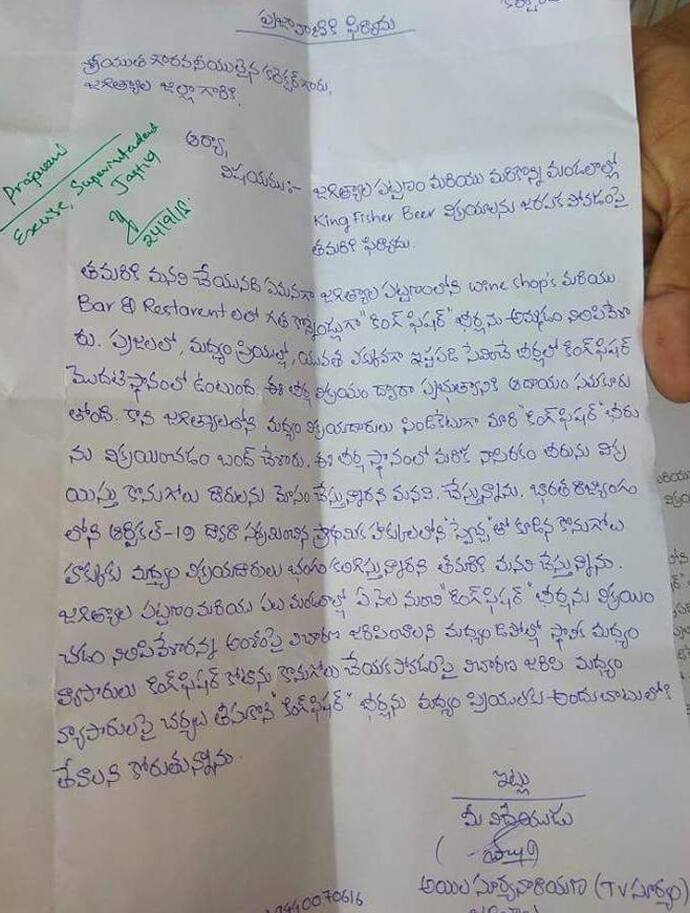 ప్రజావాణికి ఫిర్యాదు
శ్రీయుత గౌరవనీయులైన కలెక్టర్ గారు,
జగిత్యాల జిల్లా గారికి,
ఆర్యా,
Prajavani
Excise, Superintendent
Jagtial
24/9/18.
విషయము:- జగిత్యాల పట్టణం మరియు మరికొన్ని మండలాల్లో
King Fisher Beer విక్రయాలను జరపక పోవడంపై
తమరికి ఫిర్యాదు.
తమరికి మనవి చేయునది ఏమనగా జగిత్యాల పట్టణంలోని wine shop's మరియు
Bar & Restarent లలో గత కొన్నేండ్లుగా "కింగ్ ఫిషర్" బీర్లను అమ్మడం నిలిపివేశా
రు. ప్రజలలో, మద్యం ప్రియుల్లో, యువత ఎక్కువగా ఇష్టపడి సేవించే బీర్లలో కింగ్ ఫిషర్
మొదటి స్థానంలో ఉంటుంది. ఈ బీర్ల విక్రయం ద్వారా ప్రభుత్వానికి ఆదాయం సమకూరు
తోంది. కాని జగిత్యాలలోని మద్యం విక్రయదారులు సిండికేటుగా మారి "కింగ్ ఫిషర్" బీరు
ను విక్రయించడం బంద్ చేశారు. ఈ బీర్ల స్థానంలో మరిక నాసిరకం బీరును విక్ర
యిస్తు కొనుగోలు దారులను మోసం చేస్తున్నారని మనవి. చేస్తున్నాను. భారత రాజ్యాంగం
లోని ఆర్టికల్-19 ద్వారా సక్రమించిన ప్రాథమిక హక్కులలోని "స్వేచ్ఛ"తో కూడిన కొనుగోలు
హక్కుకు మద్యం విక్రయదారులు భంగం కలిగిస్తున్నారని తమరికి మనవి చేస్తున్నాను.
జగిత్యాల పట్టణం మరియు పలు మండలాల్లో ఏ నెల నుంచి "కింగ్ ఫిషర్" బీర్లను విక్రయిం
చడం నిలిపివేశారన్న అంశంపై విచారణ జరిపించాలని మద్యం డిపోల్లో స్థానిక మద్యం
వ్యాపారులు కింగ్ ఫిషర్ కోటాను కొనుగోలు చేయకపోవడంపై విచారణ జరిపి మద్యం
వ్యాపారులపై చర్యలు తీసుకొని "కింగ్ ఫిషర్" బీర్లను మద్యం ప్రియులకు అందుబాటులోకి
తేవాలని కోరుతున్నాను.
ఇట్లు
మీ విధేయుడు
అయిల సూర్యనారాయణ (TV సూర్యం)
9440070616